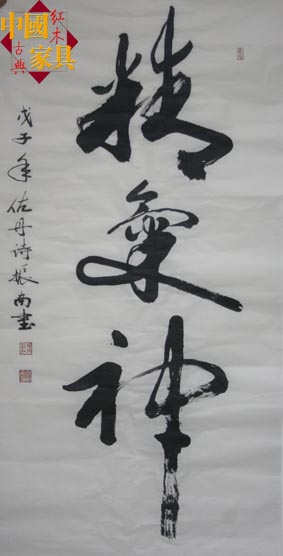 精氣神
戊子年佐丹诗振南書
中國
家具
红木
古典